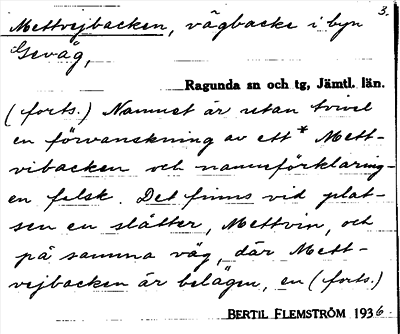 3.
Mettvejbacken, vägbacke i byn
Gevåg,
Ragunda sn och tg, Jämtl. län.
(forts.) Namnet är utan tvivel
en förvanskning av ett * Mett-
vibacken och namnförklaring-
en falsk. Det finns vid plat-
sen en slåtter, Mettvin, och
på samma väg, där Mett-
vejbacken är belägen, en (forts.)
BERTIL FLEMSTRÖM 1936